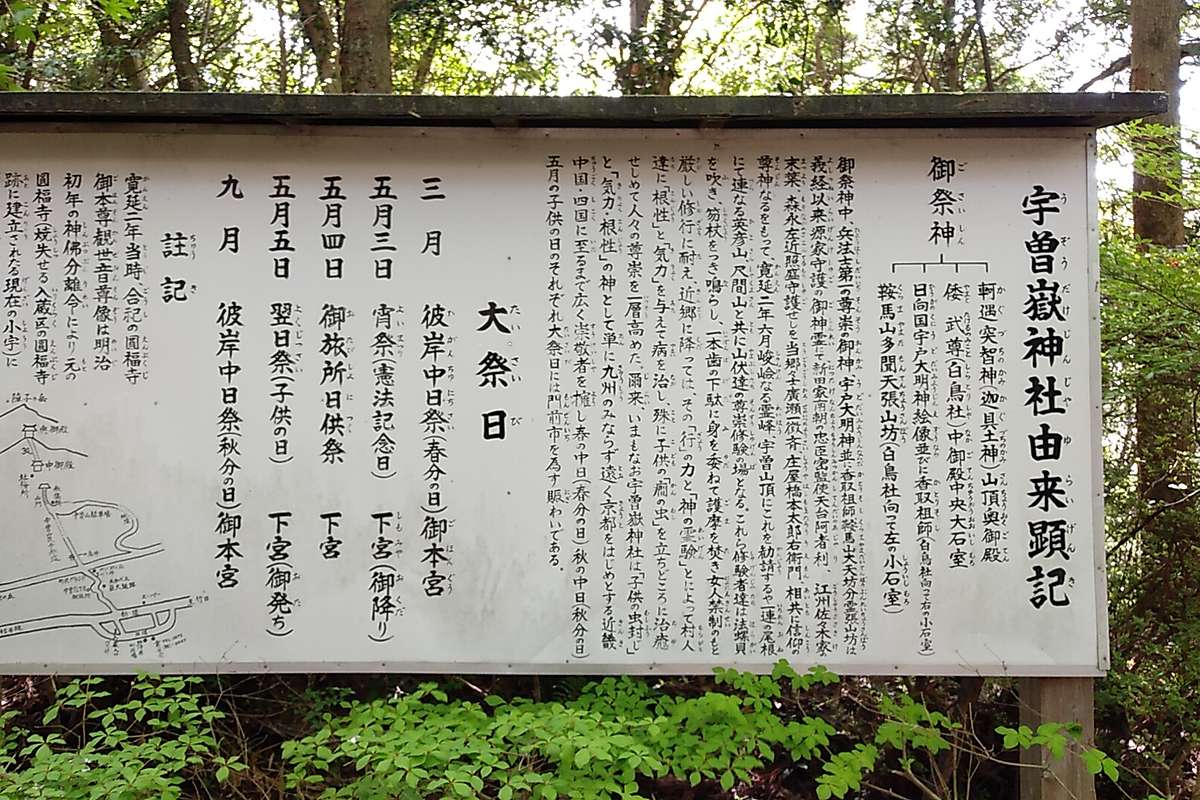 宇曽嶽神社由来顕記
御祭神
軻遇突智神(迦具土神)山頂奥御殿
倭　武尊(白鳥社)中御殿中央大石室
日向国宇戸大明神絵像並びに香取祖師(白鳥社向って右の小石室)
鞍馬山多聞天張山坊(白鳥社向って左の小石室)
御祭神中、兵法士第一の尊崇の御神、宇戸大明神並に香取祖師鞍馬山大天坊分霊張山坊は
義経以来源家守護の御神霊で新田家南朝の忠臣
末葉、森永左近照盛守護せしを当郷士廣瀬一徴斉、庄屋橋本太郎右衛門　相共に信仰
尊神なるをもって、寛延二年六月峻嶮なる霊峰、宇曽山頂にこれを勧請するや一連の尾根
にて連なる英彦山、尺間山と共に山伏達の尊崇修験場となる。これら修験者達は法螺貝
を吹き、笏杖をつき鳴らし、一本歯の下駄に身を委ねて護摩を焚き女人禁制のもと
厳しい修行に耐え、近郷に降っては、その「行」の力と「神の霊験」とによって村人
達に「根性」と「気力」を与えて病を治し、殊に子供の「癇の虫」を立ちどころに治癒
せしめて人々の尊崇を一層高めた。爾来、いまもなお宇曽嶽神社は「子供の虫封じ」
と、「気力・根性」の神として単に九州のみならず遠く京都をはじめとする近畿
中国・四国に至るまで広く崇敬者を擁し春の中日(春分の日)秋の中日(秋分の日)
五月の子供の日のそれぞれ大祭日には門前市を為す賑わいである。
大祭日
三月　彼岸中日祭(春分の日)御本宮
五月三日　宵祭(憲法記念日)　下宮(御降り)
五月四日　御旅所日供祭　下宮
五月五日　翌日祭(子供の日)　下宮(御発ち)
九月　彼岸中日祭(秋分の日)御本宮
註記
寛延二年当時、合祀の圓福寺
御本尊観世音尊像は明治
初年の神佛分離令により元の
圓福寺(焼失せる入蔵区の圓福寺
跡に建立される現在の小宇)に
障子ヶ岳
奥御殿
中御殿